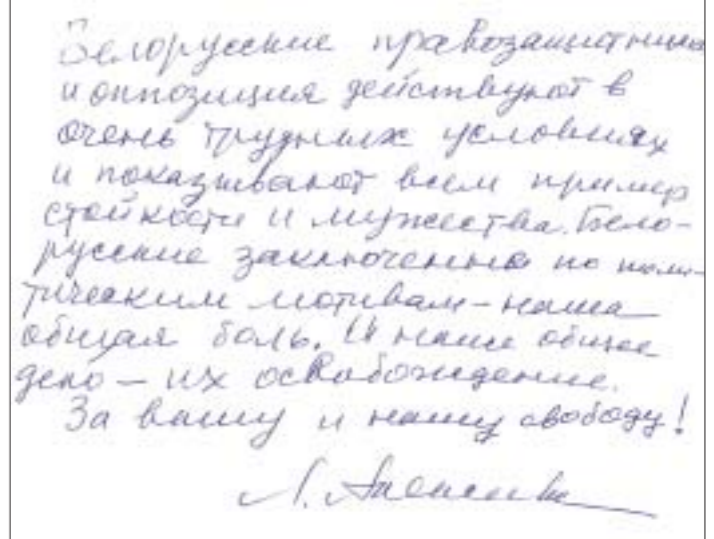 Белорусские правозащитники
и оппозиция действуют в
очень трудных условиях
и показывают всем пример
стойкости и мужества. Бело-
русские заключенные по поли-
тическим мотивам – наша
общая боль. И наше общее
дело – их освобождение.
За вашу и нашу свободу!
Л. Алексеева